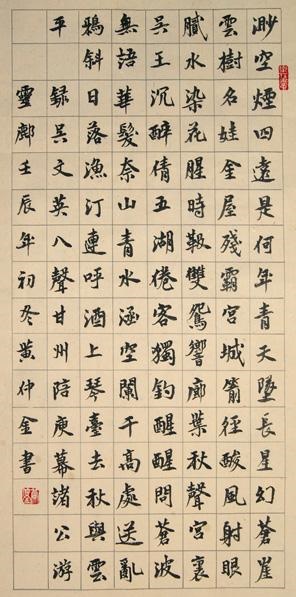 渺空煙四遠是何年青天墜長星幻蒼崖
雲樹名娃金屋殘霸宮城箭徑酸風射眼
膩水染花腥時靸雙鴛響廊葉秋聲宮裏
吳王沉醉倩五湖倦客獨釣醒醒問蒼波
無語華髮奈山青水涵空闌干高處送亂
鴉斜日落漁汀連呼酒上琴臺去秋與雲
平 錄吳文英八聲甘州陪庚幕諸公游
靈 壬辰年初冬黃仲金書